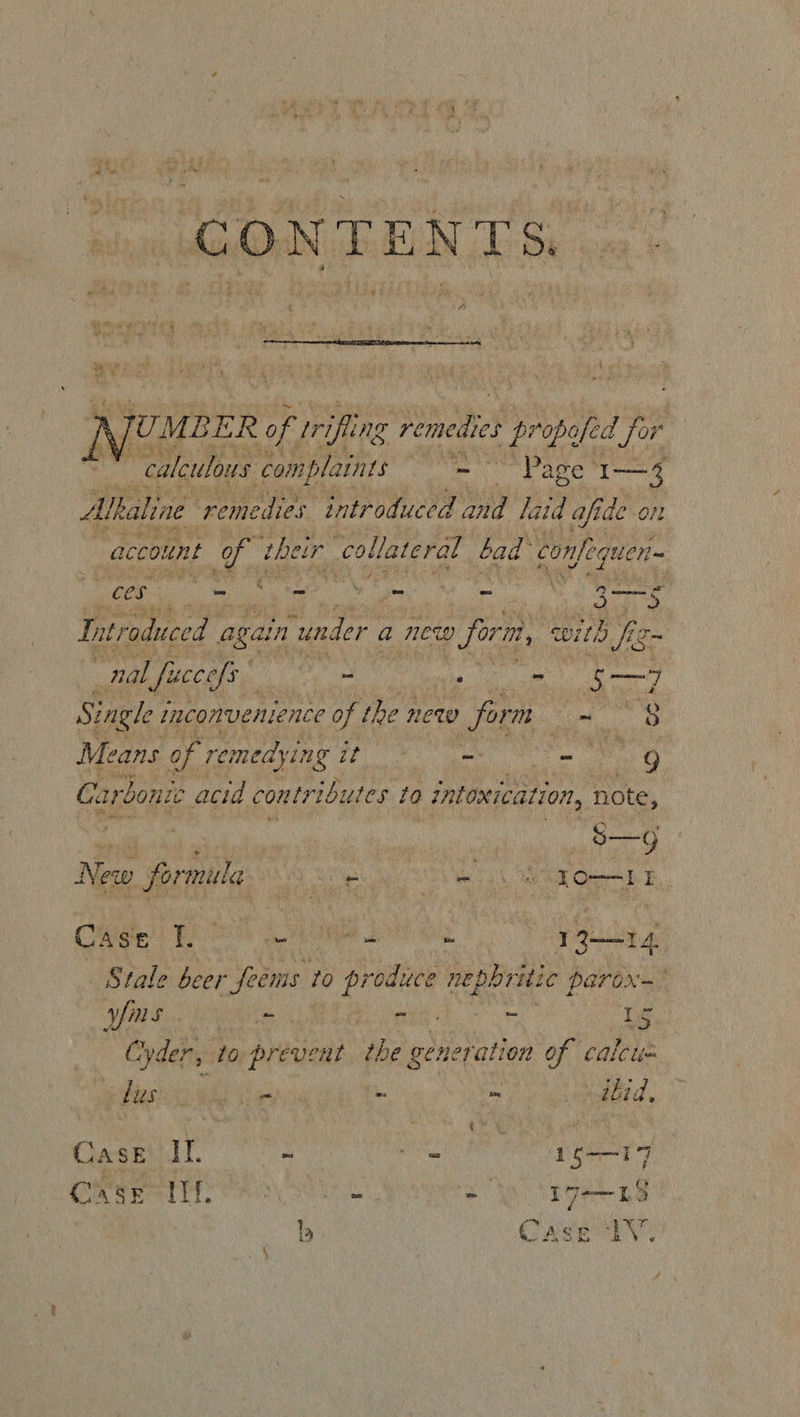 CONTENTS.
NUMBER of trifling remedies propoſed for
calculous complaints - Page 1—3
Alkaline remedies introduced and laid aſide on
account of their collateral bad conſequen-
ces - - - - 3—5
Introduced again under a new form, with ſig-
nal ſucceſs - - - 5—7
Single inconvenience of the new form - 8
Means of remedying it - - 9
Carbonic acid contributes to intoxication, note,
8—9
New formula - - 10—11
Case I. - - - 13—14
Stale beer ſeems to produce nephritic parox-
yſms - - - 15
Cyder, to prevent the generation of calcu-
lus - - - ibid.
Case II. - - 15—17
Case III. - - 17—18
b Case IV.